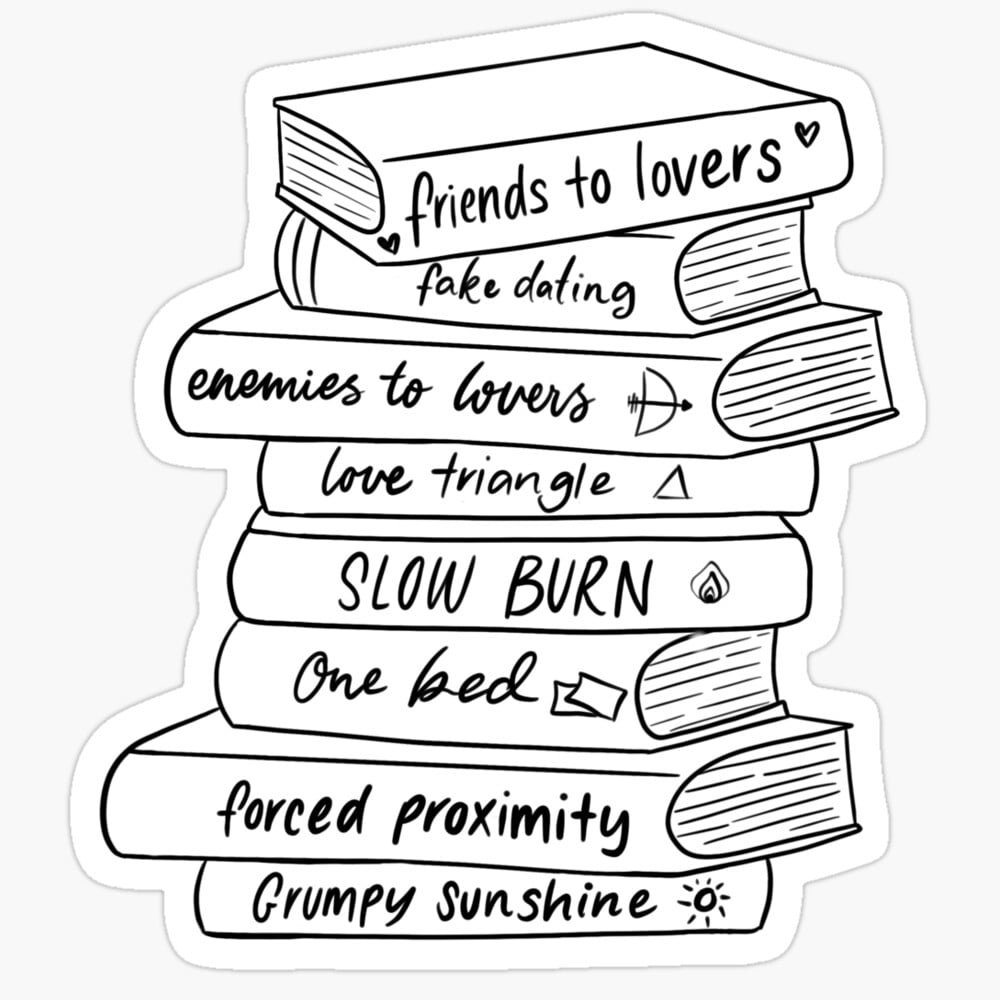 friends to lovers
fake dating
enemies to lovers
love triangle
SLOW BURN
One bed
forced proximity
Grumpy sunshine